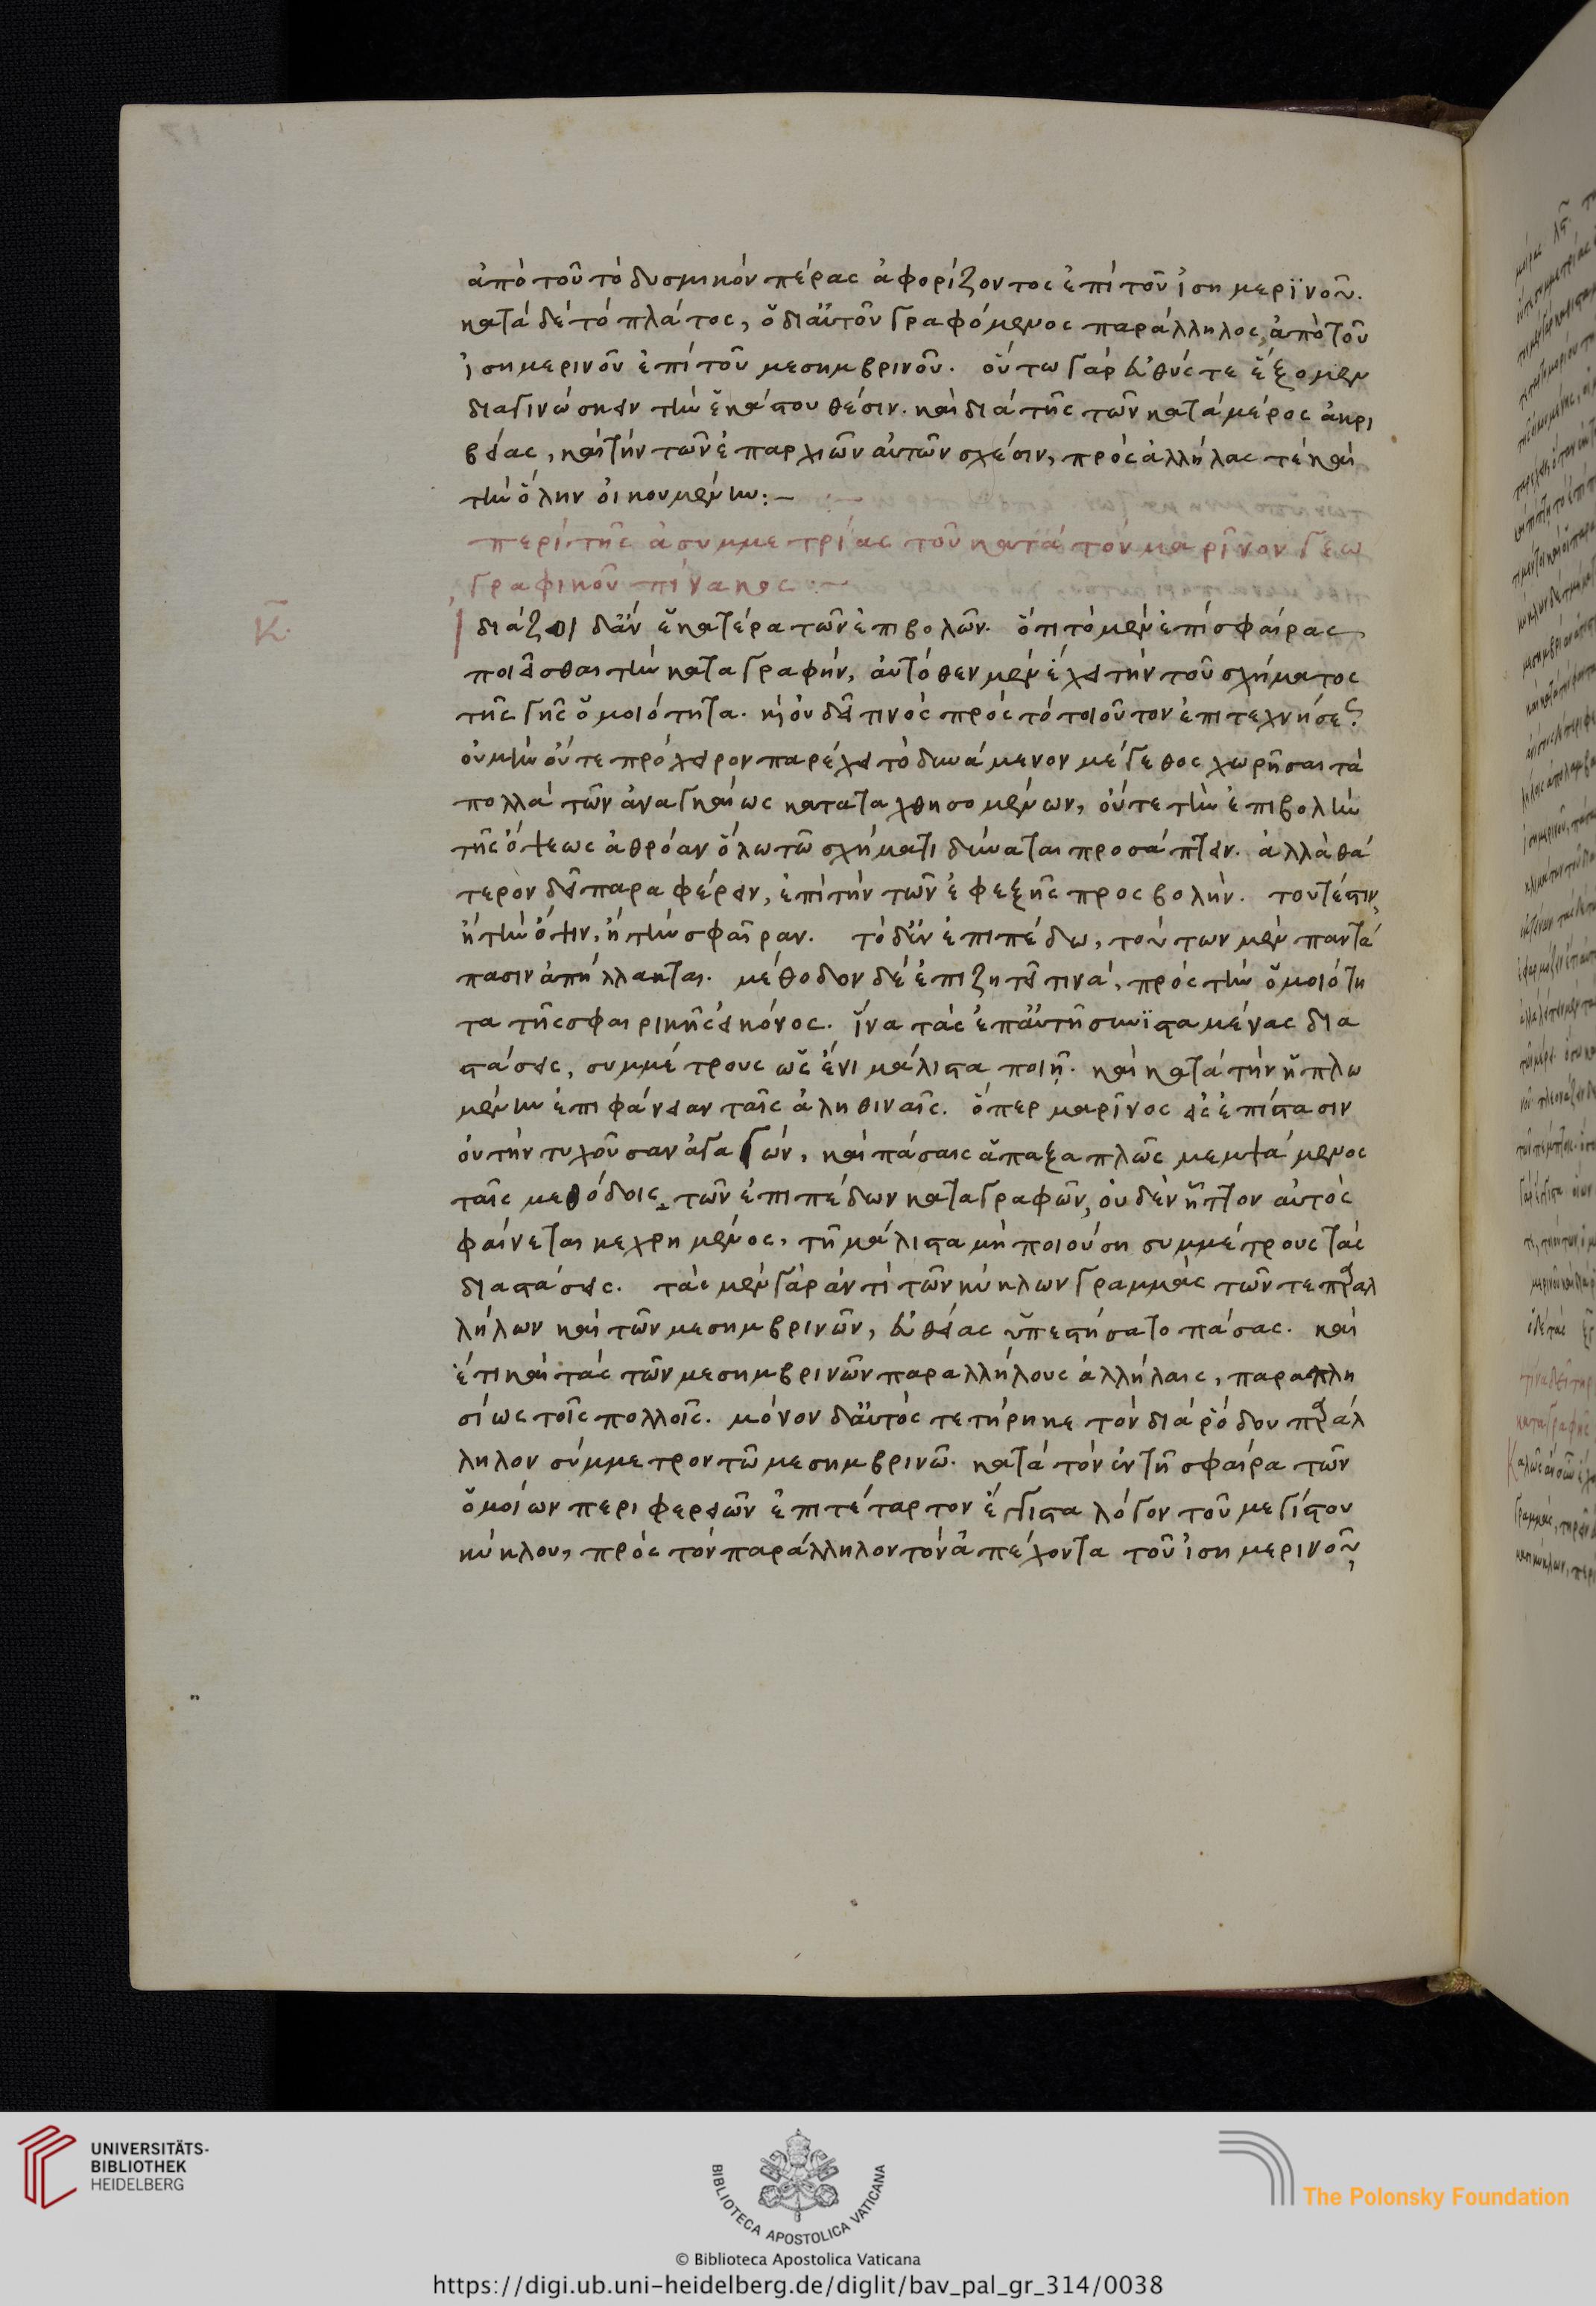 ἀπὸ τοῦ τὸ δυσμικὸν πέρας ἀφορίζοντος ἐπὶ τοῦ ἰσημερϊνοῦ.
κατὰ δὲ τὸ πλάτος, ὁ δι' αὐτοῦ γραφόμενος παράλληλος, ἀπὸ τοῦ
ἰσημερινοῦ ἐπὶ τοῦ μεσημβρινοῦ. οὕτω γὰρ εὐθύς τε ἕξομεν
διαγινώσκειν τὴν ἑκάστου θέσιν. καὶ διὰ τῆς τῶν κατὰ μέρος ἀκρι
βείας, καὶ τὴν τῶν ἐπαρχιῶν αὐτῶν σχέσιν, πρὸς ἀλλήλας τὲ καὶ
τὴν ὅλην οἰκουμένην:–
περὶ τῆς ἀσυμμετρίας τοῦ κατὰ τὸν μαρῖνον γεω
γραφικοῦ πίνακος:–
κ̄.
Ἰδιάζοι δ' ἂν ἑκατέρα τῶν ἐπιβολῶν. ὅτι τὸ μὲν ἐπὶ σφαίρας
ποιεῖσθαι τὴν καταγραφήν, αὐτόθεν μὲν ἔχει τὴν τοῦ σχήματος
τῆς γῆς ὁμοιότητα. κὶ οὐ δεῖ τινὸς πρὸς τὸ τοιοῦτον ἐπιτεχνήσεως
οὐ μὴν οὔτε πρόχειρον παρέχει τὸ δυνάμενον μέγεθος χωρῆσαι τὰ
πολλὰ τῶν ἀναγκαίως καταταχθησομένων, οὔτε τὴν ἐπιβολὴν
τῆς ὄψεως ἀθρόαν ὅλω τῶ σχήματι δύναται προσάπτειν. ἀλλὰ θά
τερον δεῖ παραφέρειν, ἐπὶ τὴν τῶν ἐφεξῆς προσβολήν. τουτέστιν,
ἢ τὴν ὄψιν, ἢ τὴν σφαῖραν. τὸ δ' ἐν ἐπιπέδω, τούτων μὲν παντά
πασιν ἀπήλλακται. μέθοδον δὲ ἐπιζητεῖ τινὰ, πρὸς τὴν ὁμοιότη
τα τῆς σφαιρικῆς εἰκόνος. ἵνα τὰς ἐπ' αὐτῆ συνϊσταμένας δια
στάσεις, συμμέτρους ὡς ἔνι μάλιστα ποιῇ. καὶ κατὰ τὴν ἡπλω
μένην ἐπιφάνειαν ταῖς ἀληθιναῖς. ὅπερ μαρῖνος εἰς ἐπίστασιν
οὐ τὴν τυχοῦσαν ἀγαγών, καὶ πάσαις ἅπαξαπλῶς μεμψάμενος
ταῖς μεθόδοις τῶν ἐπιπέδων καταγραφῶν, οὐδὲν ἧττον αὐτὸς
φαίνεται κεχρημένος, τῆ μάλιστα μὴ ποιούση συμμέτρους τὰς
διαστάσεις. τὰς μὲν γὰρ ἀντὶ τῶν κύκλων γραμμὰς τῶν τε παραλ
λήλων καὶ τῶν μεσημβρινῶν, εὐθείας ὑπεστήσατο πάσας. καὶ
ἔτι καὶ τὰς τῶν μεσημβρινῶν παραλλήλους ἀλλήλαις, παραπλη
σίως τοῖς πολλοῖς. μόνον δ' αὐτὸς τετήρηκε τὸν διὰ ῥόδου παράλ
ληλον σύμμετρον τῶ μεσημβρινῶ. κατὰ τὸν ἐν τῆ σφαίρα τῶν
ὁμοίων περιφερειῶν ἐπιτέταρτον ἔγγιστα λόγον τοῦ μεγίστου
κύκλου, πρὸς τὸν παράλληλον τὸν ἀπέχοντα τοῦ ἰσημερινοῦ,
UNIVERSITÄTS-
BIBLIOTHEK
HEIDELBERG
BIBLIOTECA APOSTOLICA VATICANA
The Polonsky Foundation
© Biblioteca Apostolica Vaticana
https://digi.ub.uni-heidelberg.de/diglit/bav_pal_gr_314/0038